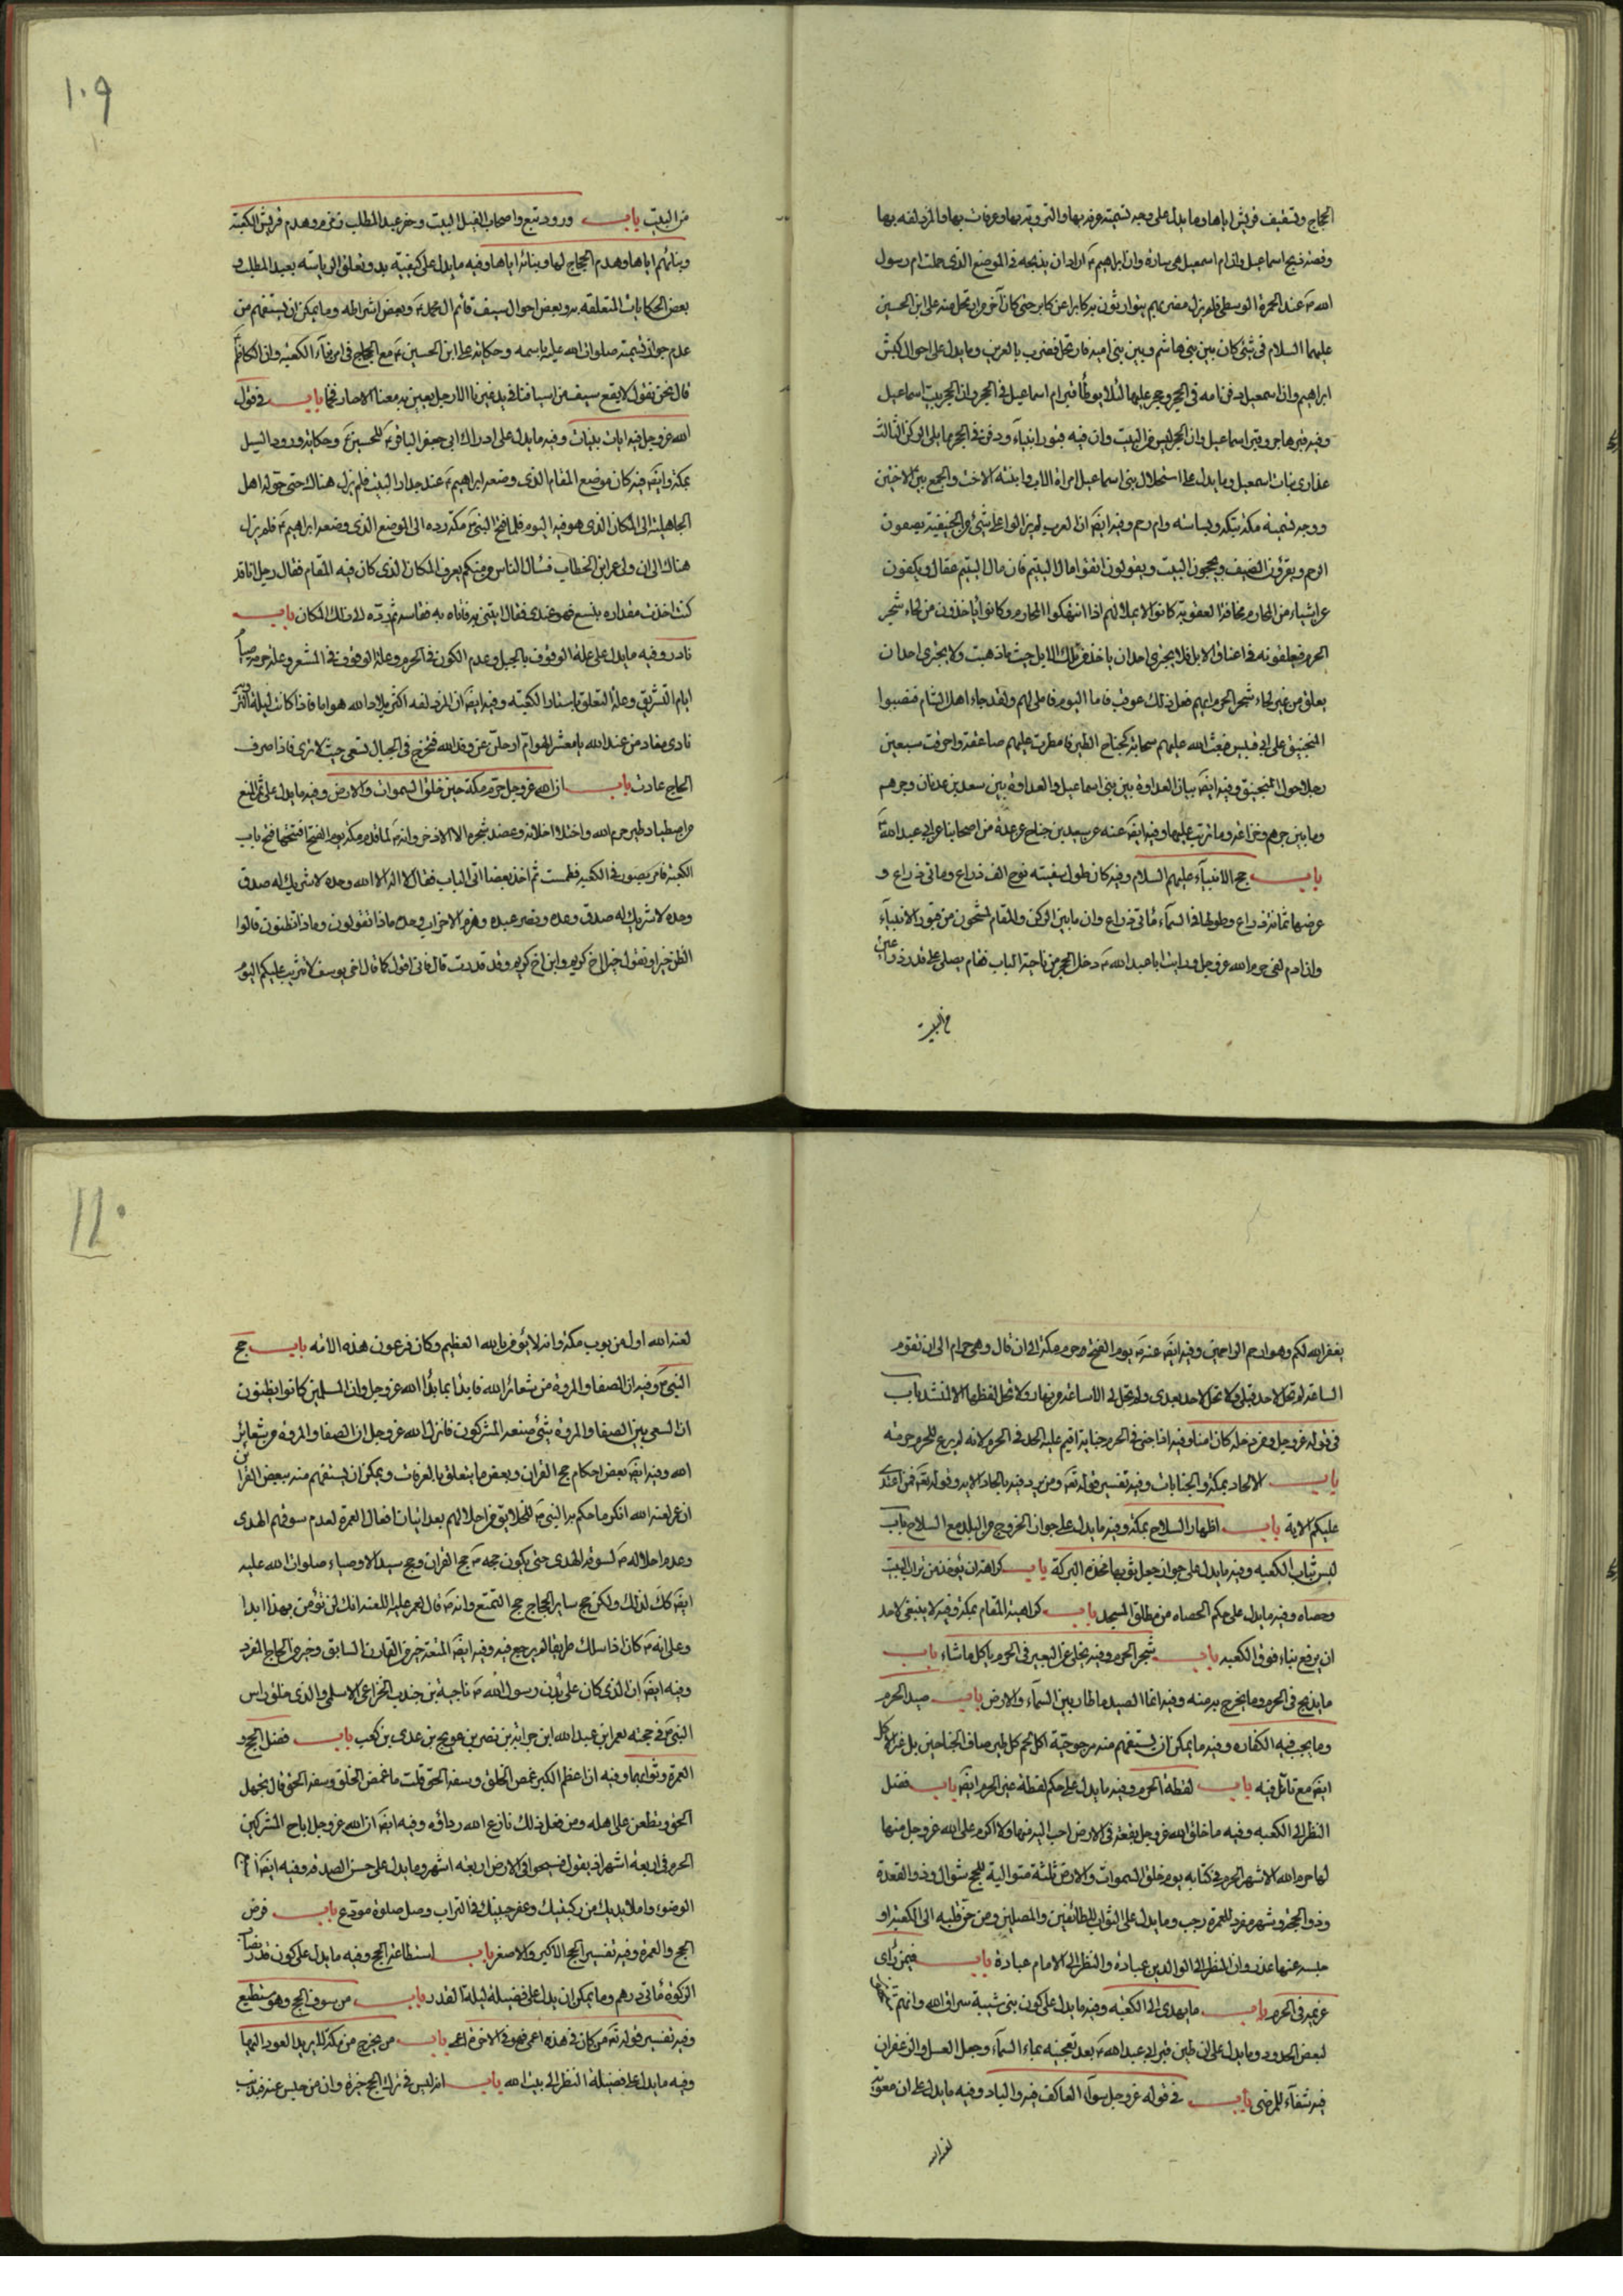 الحجاج وتسقيف قريش اياها وما يدل على وجه تسميته عرفه بها والترويه بها وعرفات بها والمزدلفه بها
وقصة ذبح اسماعيل وان ام اسمعيل هي سارة وان ابراهيم ع اراد ان يذبحه في الموضع الذي حملت ام رسول
الله ص عند الجمرة الوسطى فلم يزل مضربهم يتوارثون به كابرا عن كابر حتى كان آخر من ارتحل منه على ابن الحسين
عليهما السلام في شئ كان بين بني هاشم وبين بني اميه فارتحل فضرب بالعرين وما يدل على احوال كبش
ابراهيم وان اسمعيل دفن امه في الحجر وحجر عليها لئلا يوطأ قبر ام اسماعيل في الحجر وان الحجر بيت اسماعيل
وفيه قبر هاجر وقبر اسماعيل وان الحجر ليس من البيت وان فيه قبور انبياء ودفن في الحجر مما يلي الركن الثالث
عذارى بنات اسمعيل وما يدل على استحلال بني اسماعيل امراة الاب وابنته الاخت والجمع بين الاختين
ووجه تسمية مكة ببكة وبساسه وام رحم وفيه ايضا ان العرب لم يزالوا على شئ من الحنيفية يصلون
الرحم ويقرون الضيف ويحجون البيت ويقولون اتقوا مال اليتيم فان مال اليتيم عقال ويكفون
عن اشياء من المحارم مخافة العقوبة كانوا لا يملى لهم اذا انتهكوا المحارم وكانوا ياخذون من لحاء شجر
الحرم فيعلقونه في اعناق الابل فلا يجترئ احد ان ياخذ تلك الابل حيث ما ذهبت ولا يجترئ احد ان
يعلق من غير لحاء شجر الحرم ايهم فعل ذلك عوقب فاما اليوم فاملى لهم ولقد جاء اهل الشام فنصبوا
المنجنيق على ابي قبيس فبعث الله عليهم سحابة كجناح الطير فامطرت عليهم صاعقة واحرقت سبعين
رجلا حول المنجنيق وفيه ايضا بيان العداوة بين بني اسماعيل والعداوة بين سعد بن عدنان وجرهم
وما بين جرهم وخزاعه وما ترتب عليها وفيه ايضا عنه عن سعيد بن جناح عن عدة من اصحابنا عن ابي عبد الله ع
باب حج الانبياء عليهم السلام وفيه كان طول سفينة نوح الف ذراع ومائتي ذراع و
عرضها ثمانة ذراع وطولها في السماء مأتي ذراع وان ما بين الركن والمقام لمشحون من قبور الانبياء
وان ادم لفي حرم الله عز وجل ورايت ابا عبد الله ع دخل الحجر من ناحية الباب فقام يصلي على قدر ذراعين
من البيت
١٠٩
من البيت باب ورود تبع واصحاب الفيل البيت وحفر عبد المطلب زمزم وهدم قريش الكعبة
وبنائهم اياها وهدم الحجاج لها وبنائه اياها وفيه ما يدل على كيفية بدو تعلق الرياسه بعبد المطلب و
بعض الحكايات المتعلقه به وبعض احوال سيف قائم ال محمد ص وبعض اشراطه وما يمكن ان يستفهم من
عدم جواز تسميته صلوات الله عليه باسمه وحكاية على ابن الحسين ع مع الحجاج في امر بناء الكعبة وان الكاظم
قال نحن نقول لا يقع سيف من اسيافنا في يد غيرنا الا رجل يعين به معنا الا صار فحما باب في قول
الله عز وجل فيه ايات بينات وفيه ما يدل على ادراك ابي جعفر الباقر ع للحسين ع وحكاية ورود السيل
بمكة وايضا فيه كان موضع المقام الذي وضعه ابراهيم ع عند جدار البيت فلم يزل هناك حتى حوله اهل
الجاهلية الى المكان الذي هو فيه اليوم فلما فتح النبي ص مكة رده الى الموضع الذي وضعه ابراهيم ع فلم يزل
هناك الى ان ولى عمر ابن الخطاب فسال الناس من منكم يعرف المكان الذي كان فيه المقام فقال رجل انا قد
كنت اخذت مقداره بنسع فهو عندي فقال ايتني به فاتاه به فقاسه ثم رده الى ذلك المكان باب
نادر وفيه ما يدل على علة الوقوف بالجبل وعدم الكون في الحرم وعلة الوقوف في المشعر وعلة حرمة صيام
ايام التشريق وعلة التعلق باستار الكعبة وفيه ايضا ان المزدلفه اكثر بلاد الله هواما فاذا كانت ليلة التروية
نادى مناد من عند الله يا معشر الهوام ارحلن عن وفد الله فتخرج في الجبال تسعى حيث لا ترى فاذا صرف
الحاج عادت باب ان الله عز وجل حرم مكة حين خلق السموات والارض وفيه ما يدل على المنع
من اصطياد طير حرم الله واختلاء خلائه وعضد شجره الا الاذخر وانه ص لما قدم مكة يوم الفتح افتتحها فتح باب
الكعبة فامر بصور في الكعبه فطمست ثم اخذ بعضادتي الباب فقال لا اله الا الله وحده لا شريك له صدق
وحده لا شريك له صدق وعده ونصر عبده وهزم الاحزاب وحده ماذا تقولون وماذا تظنون قالوا
نظن خيرا ونقول خيرا اخ كريم وابن اخ كريم وقد قدرت قال فاني اقول كما قال اخي يوسف لا تثريب عليكم اليوم
يغفر الله لكم وهو ارحم الراحمين وفيه ايضا عنه ص يوم الفتح حرم مكة الى ان قال وهي حرام الى ان تقوم
الساعة لم تحل لاحد قبلي ولا تحل لاحد بعدي ولم تحل لي الا ساعة من نهار ولا تحل لقطتها الا لمنشد باب
في قوله عز وجل ومن دخله كان امنا وفيه اذا جنى في الحرم جناية اقيم عليه الحد في الحرم لانه لم يرع للحرم حرمته
باب الالحاد بمكة والجنايات وفيه تفسير قوله تعه ومن يرد فيه بالحاد الايه وقوله تعه فمن اعتدى
عليكم الاية باب اظهار السلاح بمكة وفيه ما يدل على جواز الخروج من البلد مع السلاح باب
لبس ثياب الكعبه وفيه ما يدل على جواز جعل ثوبها مخدة البركة باب كراهة ان يؤخذ من تراب البيت
وحصاه وفيه ما يدل على حكم الحصاه من مطلق المسجد باب كراهية المقام بمكة وفيه لا ينبغي لاحد
ان يرفع بناء فوق الكعبه باب شجر الحرم وفيه يخلى عن البعير في الحرم ياكل ما شاء باب
ما يذبح في الحرم وما يخرج به منه وفيه انما الصيد ما طار بين السماء والارض باب صيد الحرم
وما يجب فيه الكفاره وفيه ما يمكن ان يستفهم منه مرجوحية اكل لحم كل طير صاف الجناحين بل غراب كل
ايضا مع تامل فيه باب لقطة الحرم وفيه ما يدل على حكم لقطة غير الحرم ايضا باب فضل
النظر الى الكعبه وفيه ما خلق الله عز وجل بقعة في الارض احب اليه منها ولا اكرم على الله عز وجل منها
لها حرم الله الاشهر الحرم في كتابه يوم خلق السموات والارض ثلثة متوالية للحج شوال وذو القعدة
وذو الحجة وشهر مفرد للعمرة رجب وما يدل على الثواب للطائفين والمصلين ومن حن قلبه الى الكعبة او
حبسه عنها عذر وان النظر الى الوالدين عبادة والنظر الى الامام عبادة باب فيمن راى
غريمه في الحرم باب ما يهدى الى الكعبه وفيه ما يدل على كون بني شيبة سراق الله وانهم
لبعض الحدود وما يدل على ان طين قبر ابي عبد الله ع بعد تعجينه بماء السماء وجعل العسل والزعفران
فيه شفاء للمرضى باب في قوله عز وجل سواء العاكف فيه والباد وفيه ما يدل على ان معوية
لعنه الله
١١٠
لعنه الله اول من بوب مكة وانه لا يؤمن بالله العظيم وكان فرعون هذه الامه باب حج
النبي ص وفيه ان الصفا والمروة من شعائر الله فابدأ بما بدأ الله عز وجل وان المسلمين كانوا يظنون
ان السعي بين الصفا والمروة شئ صنعه المشركون فانزل الله عز وجل ان الصفا والمروة من شعائر
الله وفيه ايضا بعض احكام حج القران وبعض ما يتعلق بالعرفات ويمكن ان يستفهم منه ببعض القرائن
ان عمر لعنه الله انكر ما حكم به النبي ص للخلايق من احلالهم بعد اتيان افعال العمرة لعدم سوقهم الهدى
وعدم احلاله ص لسوقه الهدى حتى يكون حجه ص حج القران وحج سيد الاوصياء صلوات الله عليه
ايضا كك لذلك ولكن حج ساير الحجاج حج التمتع وانه ص قال لعمر عليه اللعنه انك لن تؤمن بهذا ابدا
وعلى انه ص كان اذا سلك طريقا لم يرجع فيه وفيه ايضا المتعة خير من القارن السايق وخير من الحاج المفرد
وفيه ايضا ان الذي كان على بدن رسول الله ص ناجية بن جندب الخزاعي الاسلمي والذي حلق راس
النبي ص في حجته معمر ابن عبد الله ابن حراثة بن نصر بن عويج بن عدي بن كعب باب فضل الحج و
العمرة وثوابهما وفيه ان اعظم الكبر غمص الخلق وسفه الحق قلت ما غمص الخلق وسفه الحق قال يجهل
الحق ويطعن على اهله ومن فعل ذلك نازع الله رداؤه وفيه ايضا ان الله عز وجل اباح المشركين
الحرم في اربعة اشهر اذ يقول فسيحوا في الارض اربعة اشهر وما يدل على حسن الصدقه وفيه ايضا
الوضوء واملا يديك من ركبتيك وعفر جبينك في التراب وصل صلوة مودع باب فرض
الحج والعمرة وفيه تفسير الحج الاكبر والاصغر باب استطاعة الحج وفيه ما يدل على كون قدر نصاب
الزكوة مأتي درهم وما يمكن ان يدل على فضيلة ليلة القدر باب من سوف الحج وهو مستطيع
وفيه تفسير قوله تعه من كان في هذه اعمى فهو في الاخرة اعمى باب من يخرج من مكة لا يريد العود اليها
وفيه ما يدل على فضيلة النظر الى بيت الله باب انه ليس في ترك الحج خيرة وان من حبس عنه فبذنب